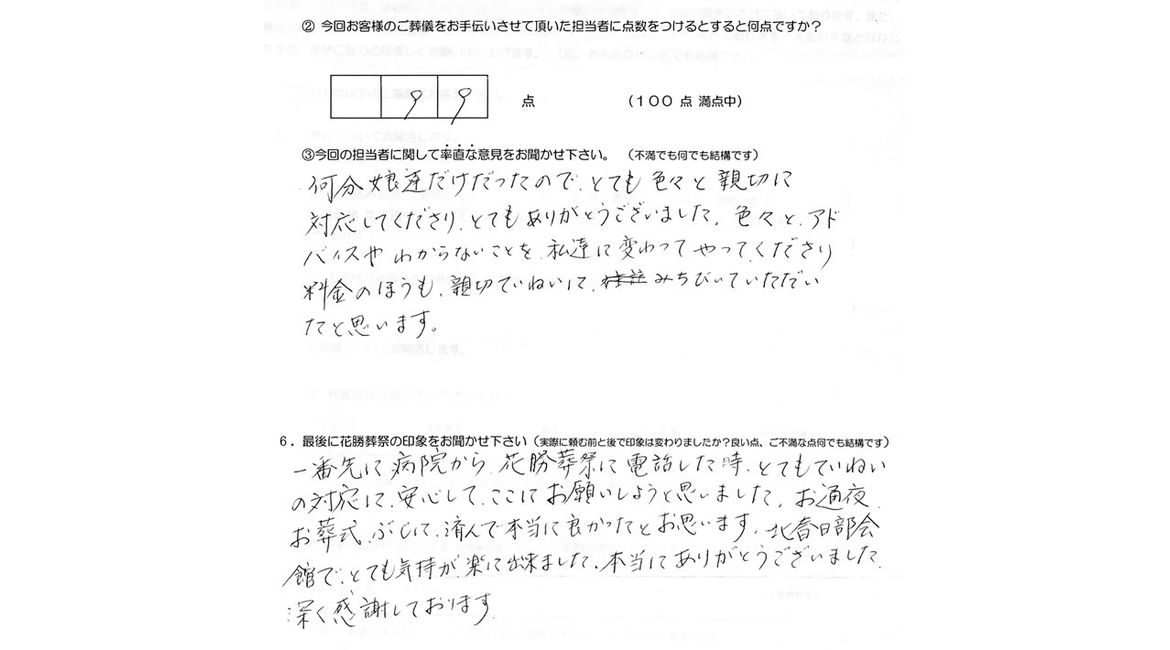 ② 今回お客様のご葬儀をお手伝いさせて頂いた担当者に点数をつけるとすると何点ですか？
99 点 （１００ 点 満点中）
③今回の担当者に関して率直な意見をお聞かせ下さい。 （不満でも何でも結構です）
何分娘達だけだったので、とても色々と親切に
対応してくださり、とてもありがとうございました。色々と、アド
バイスや わからないことを、私達に変わって やって、くださり
料金のほうも、親切ていねいに、みちびいていただい
たと思います。
６．最後に花勝葬祭の印象をお聞かせ下さい（実際に頼む前と後で印象は変わりましたか？良い点、ご不満な点何でも結構です）
一番先に病院から、花勝葬祭に電話した時、とてもていねい
の対応に、安心して、ここにお願いしようと思いました。お通夜、
お葬式、ぶじに、済んで本当に良かったとお思います。北春日部会
館で、とても気持が、楽に出来ました、本当にありがとうございました、
深く感謝しております。